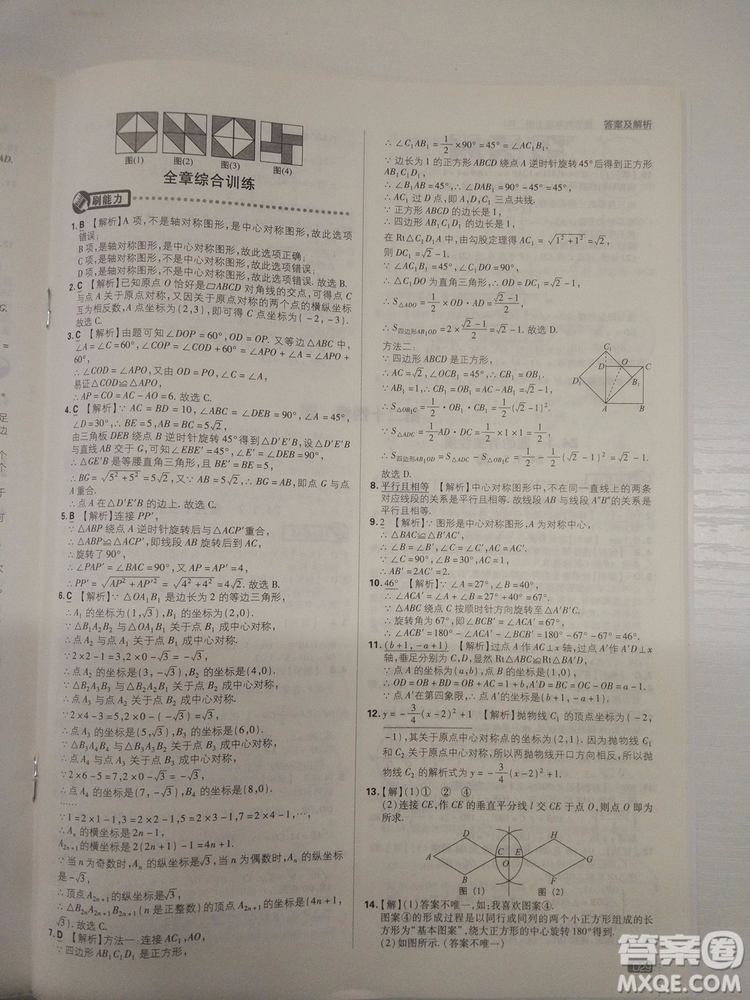 答案及解析
图(1)
图(2)
图(3)
图(4)
全章综合训练
刷能力
1. B 【解析】A项,不是轴对称图形,是中心对称图形,故此选项
错误;
B项,是轴对称图形,也是中心对称图形,故此选项正确;
C项,是轴对称图形,不是中心对称图形,故此选项错误;
D项,是轴对称图形,不是中心对称图形,故此选项错误.故选B.
2. C 【解析】已知原点O恰好是▱ABCD对角线的交点,可得点C
与点A关于原点对称,又因为关于原点对称的两个点的横纵坐标
互为相反数,A点坐标为(2,3),即可得C点坐标为(-2,-3).
故选C.
3. C 【解析】由题可知∠DOP=60°,OD=OP.又等边△ABC中,
∠A=∠C=60°,∠COP=∠COD+∠DOP=∠A+∠APO=∠APO+
60°,
∴∠COD=∠APO.又OD=OP,∠A=∠C,
易证△CDO≌△AOP,
∴AP=CO=AC-AO=6.故选C.
4. C 【解析】∵AC=BD=10,∠ABC=∠DEB=90°,∠A=45°,
∠D=30°,∴BE=5,AB=BC=5√2.
由三角板DEB绕点B逆时针旋转45°得到△D′E′B,设△D′E′B
与直线AB交于G,可知∠EBE′=45°,∠E′=∠DEB=90°,
∴△GE′B是等腰直角三角形,且BE′=BE=E′G=5,
∴BG=√(5²+5²)=5√2,又∵AB=5√2,∴AB=BG,即点G与点A
重合,
∴点A在△D′E′B的边上.故选C.
5. B 【解析】连接PP′,
∵△ABP绕点A逆时针旋转后与△ACP′重合,
∴△ABP≌△ACP′,即线段AB旋转后到AC,
∴旋转了90°,
∴∠PAP′=∠BAC=90°,又∵AP=AP′=4,
∴PP′=√(AP²+AP′²)=√(4²+4²)=4√2.故选B.
6. C 【解析】∵△OA₁B₁是边长为2的等边三角形,
∴A₁的坐标为(1,√3),B₁的坐标为(2,0).
∵△B₂A₂B₁与△OA₁B₁关于点B₁成中心对称,
∴点A₂与点A₁关于点B₁成中心对称.
∵2×2-1=3,2×0-√3=-√3,
∴点A₂的坐标是(3,-√3),B₂的坐标是(4,0).
∵△B₂A₃B₃与△B₂A₂B₁关于点B₂成中心对称,
∴点A₃与点A₂关于点B₂成中心对称.
∵2×4-3=5,2×0-(-√3)=√3,
∴点A₃的坐标是(5,√3),B₃的坐标是(6,0).
∵△B₃A₄B₄与△B₂A₃B₃关于点B₃成中心对称,
∴点A₄与点A₃关于点B₃成中心对称.
∵2×6-5=7,2×0-√3=-√3,
∴点A₄的坐标是(7,-√3),B₄的坐标是(8,0).
……
∵1=2×1-1,3=2×2-1,5=2×3-1,7=2×4-1,…,
∴Aₙ的横坐标是2n-1,
A₂ₙ₊₁的横坐标是2(2n+1)-1=4n+1.
∵当n为奇数时,Aₙ的纵坐标是√3,当n为偶数时,Aₙ的纵坐标
是-√3,
∴顶点A₂ₙ₊₁的纵坐标是√3,
∴△B₂ₙA₂ₙ₊₁B₂ₙ₊₁(n是正整数)的顶点A₂ₙ₊₁的坐标是(4n+1,
√3).故选C.
7. D 【解析】方法一:连接AC₁,AO,
∵四边形AB₁C₁D₁是正方形,
∴∠C₁AB₁=1/2×90°=45°=∠AC₁B₁.
∵边长为1的正方形ABCD绕点A逆时针旋转45°得到正方形
AB₁C₁D₁,
∴∠B₁AB=45°,∴∠DAB₁=90°-45°=45°,
∴AC₁过D点,即A,D,C₁三点共线.
∵正方形ABCD的边长是1,
∴四边形AB₁C₁D₁的边长是1,
在Rt△C₁D₁A中,由勾股定理得AC₁=√(1²+1²)=√2,
则DC₁=√2-1.
∵∠AC₁B₁=45°,∠C₁DO=90°,
∴△C₁DO为直角三角形,
∴S△ADO=1/2×OD·AD=(√2-1)/2,
∴S四边形AB₁OD=2×(√2-1)/2=√2-1.故选D.
方法二:
∵四边形ABCD是正方形,
∴AC=√2,∠OCB₁=45°,∴CB₁=OB₁.
∵AB₁=1,∴CB₁=OB₁=AC-AB₁=√2-1,
∴S△OB₁C=1/2·OB₁·CB₁=1/2(√2-1)².
∵S△ADC=1/2AD·AC=1/2×1×1=1/2,
∴S四边形AB₁OD=S△ADC-S△OB₁C=1/2-1/2(√2-1)²=√2-1.
故选D.
C₁
D
O
C
D₁
B₁
A
B
8. 平行且相等 【解析】中心对称图形中,不在同一直线上的两条
对应线段的关系是平行且相等.故线段AB与线段A″B″的关系是
平行且相等.
9. 2 【解析】∵图形是中心对称图形,A为对称中心,
∴△ABC≌△AB′C′,
∴∠B=∠B′,∠C=∠C′,AB=AB′.
∵∠C=90°,∠B=30°,AC=1,
∴AB′=2AC=2×1=2.
10. 46° 【解析】∵∠A=27°,∠B=40°,
∴∠ACA′=∠A+∠B=27°+40°=67°.
∵△ABC绕点C按顺时针方向旋转至△A′B′C.
旋转角为67°,即∠BCB′=∠ACA′=67°,
∴∠ACB′=180°-∠ACA′-∠BCB′=180°-67°-67°=46°.
11. (b+1,-a+1) 【解析】过点A作AC⊥x轴,过点A′作A′D⊥x
轴,垂足分别为C,D,显然Rt△ABC≌Rt△BA′D.
∵点A的坐标为(a,b),点B的坐标是(1,0),
∴OD=OB+BD=OB+AC=1+b,A′D=BC=a-1.
∵点A′在第四象限,∴点A′的坐标是(b+1,-a+1).
12. y=-3/4(x-2)²+1 【解析】抛物线C₁的顶点坐标为(-2,
-1),其关于原点中心对称点的坐标为(2,1).因为抛物线C₁和
C₂关于原点中心对称,所以两抛物线开口方向相反,所以抛
物线C₂的解析式为y=-3/4(x-2)²+1.
13. 【解】(1)① ② ④
(2)连接CE,作CE的垂直平分线l交CE于点O,则点O即为
所求.
A
D
B
C
E
O
H
F
G
图(1)
图(2)
14. 【解】(1)答案不唯一,如:我喜欢图案④.
图案④的形成过程是以同行或同列的两个小正方形组成的长
方形为“基本图案”,绕大正方形的中心旋转180°得到.
(2)如图所示.(答案不唯一)
029
答案圈
MXQE.COM